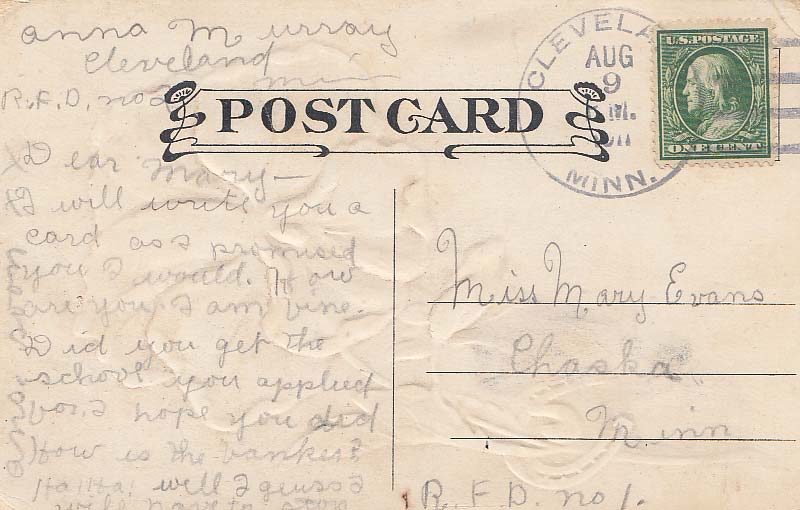 Anna Murray
Cleveland
Minn
R.F.D. no 2
POST CARD
CLEVELA
AUG
9
M.
1911
MINN.
U.S. POSTAGE
ONE CENT
Dear Mary—
I will write you a
card as I promised
you I would. How
are you I am vine.
Did you get the
school you applied
vor. I hope you did
How is the banker?
Ha! Ha! well I geuss I
will have to stop
Miss Mary Evans
Chaska
Minn
R.F.D. no 1.